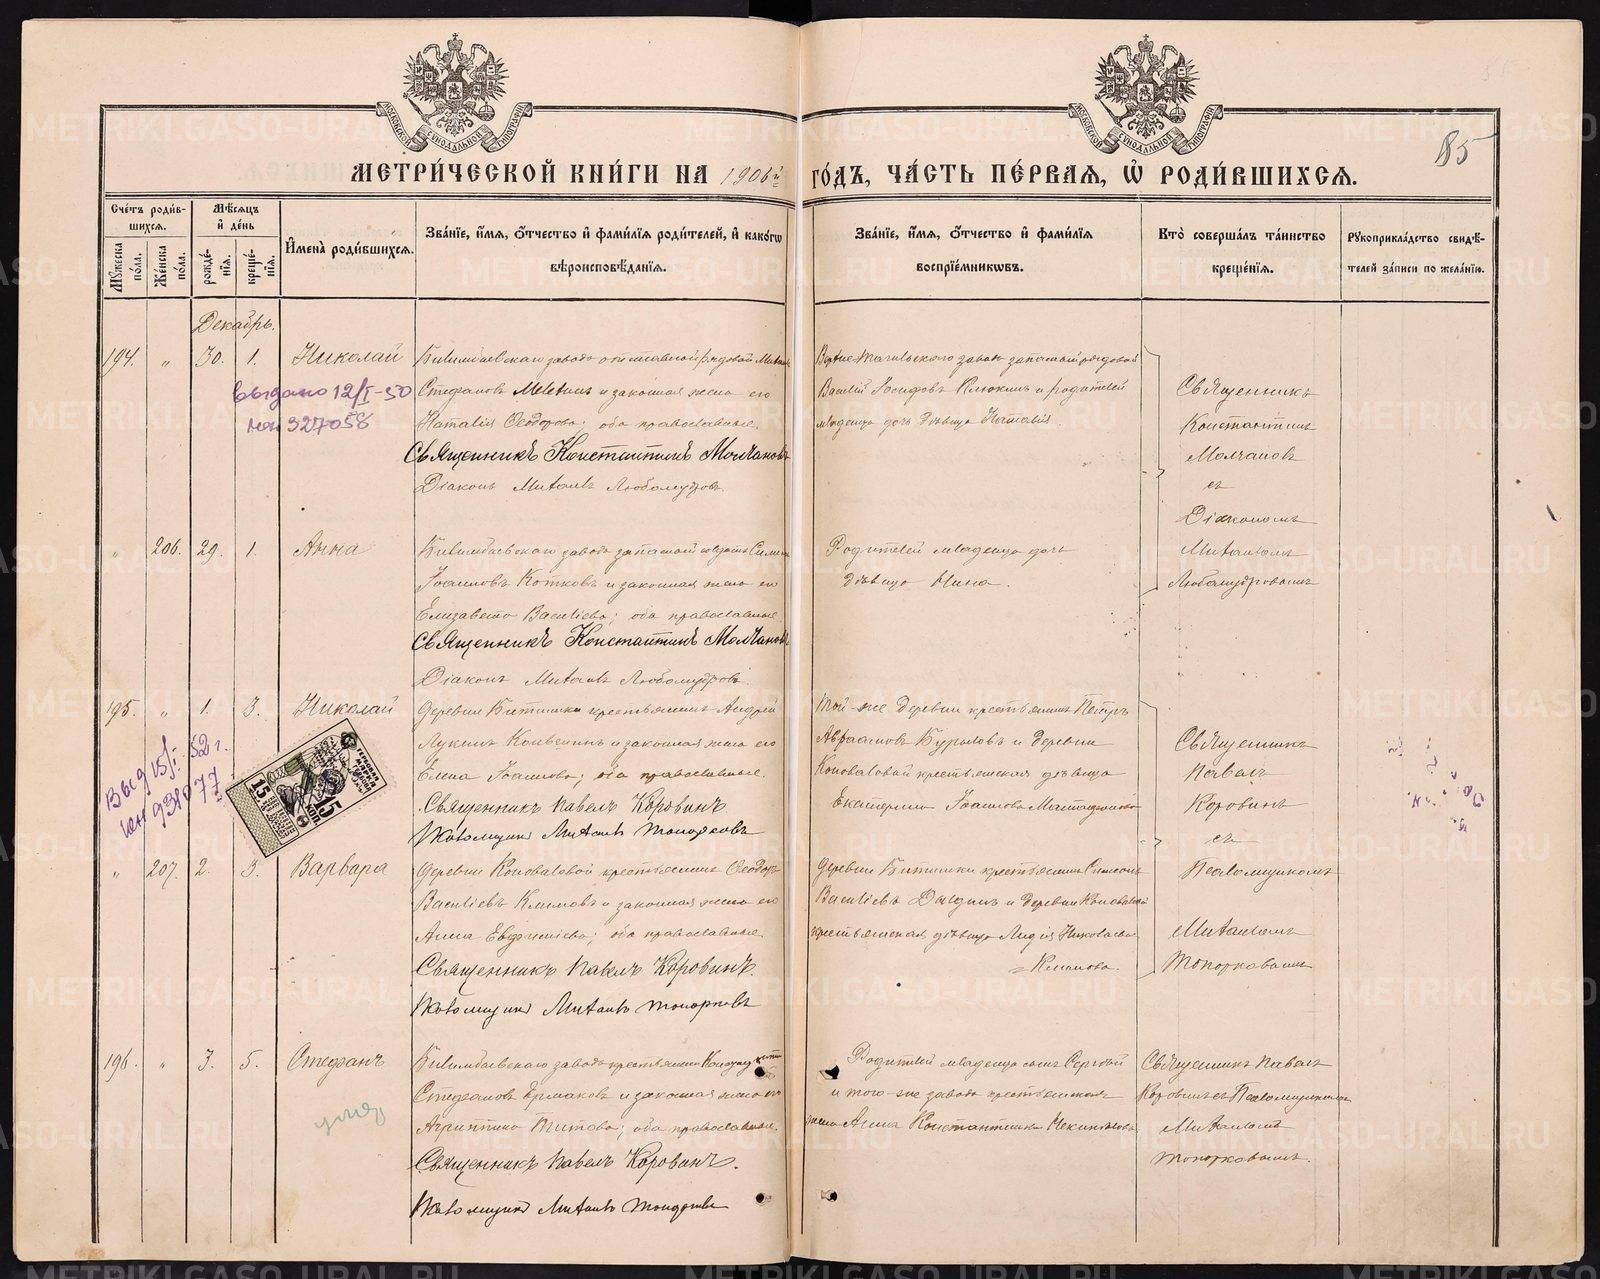 МОСКОВСКОЙ СѴНОДАЛЬНОЙ ТИПОГРАФІИ
МОСКОВСКОЙ СѴНОДАЛЬНОЙ ТИПОГРАФІИ
85
МЕТРИ́ЧЕСКОЙ КНИ́ГИ НА 1906й ГО́ДЪ, ЧА́СТЬ ПЕ́РВАЯ, Ѡ҆ РОДИ́ВШИХСѦ.
Сче́тъ роди́в-
шихсѧ.
Мꙋжеска по́ла.
Же́нска по́ла.
Мѣ́сѧцъ
и҆ де́нь
рожде́-
нїѧ.
креще́-
нїѧ.
И҆мена̀ роди́вшихсѧ.
Зва́нїе, и҆́мѧ, ѻ҆́тчество и҆ фами́лїѧ роди́телей, и҆ како́гѡ
вѣроисповѣ́данїѧ.
Зва́нїе, и҆́мѧ, ѻ҆́тчество и҆ фами́лїѧ
воспрїе́мникѡвъ.
Кто̀ соверша́лъ та́инство
креще́нїѧ.
Рꙋкоприкла́дство свидѣ́-
телей за́писи по жела́нїю.
Декабрь.
194. " 30. 1. Николай
Билимбаевскаго завода отставной рядовой
Стефановъ и законная жена его
Наталія Ѳеодорова; оба православные.
Священникъ Константинъ Молчановъ
Діаконъ Михаилъ Любомудровъ.
выдано 12/I-50
327058
завода запасной рядовой
Василій Іосифовъ Клюкинъ и родителей
младенца дочь дѣвица Наталія.
Священникъ
Константинъ
Молчановъ
съ
Діакономъ
Михаиломъ
Любомудровымъ
" 206. 29. 1. Анна
Билимбаевскаго завода запасной
Іоанновъ Котковъ и законная жена его
Елизавета Василіева; оба православные
Священникъ Константинъ Молчановъ
Діаконъ Михаилъ Любомудровъ.
Родителей младенца дочь
дѣвица Нина.
195. " 1. 3. Николай
деревни Битимки крестьянинъ Андрей
Лукинъ и законная жена его
Елена Іоаннова; оба православные.
Священникъ Павелъ Коровинъ
Псаломщикъ Михаилъ Топорковъ
Выд 15/I 52 г.
15 КОП.
15
Той-же деревни крестьянинъ Петръ
Авраамовъ Бурыловъ и деревни
Коноваловой крестьянская дѣвица
Екатерина Іоаннова
Священникъ
Павелъ
Коровинъ
съ
Псаломщикомъ
Михаиломъ
Топорковымъ
" 207. 2. 3. Варвара
деревни Коноваловой крестьянинъ Ѳеодоръ
Василіевъ Климовъ и законная жена его
Анна Евфиміева; оба православные.
Священникъ Павелъ Коровинъ.
Псаломщикъ Михаилъ Топорковъ
деревни Битимки крестьянинъ Симеонъ
Василіевъ и деревни Коноваловой
крестьянская дѣвица Лидія Николаева
Климова.
196. " 3. 5. Стефанъ
Билимбаевскаго завода крестьянинъ
Стефановъ Ермаковъ и законная жена его
Агриппина Титова; оба православные.
Священникъ Павелъ Коровинъ.
Псаломщикъ Михаилъ Топорковъ
Родителей младенца сынъ Сергѣй
и того-же завода крестьянская
жена Анна Константинова
Священникъ Павелъ
Коровинъ съ Псаломщикомъ
Михаиломъ
Топорковымъ.
METRIKI.GASO-URAL.RU